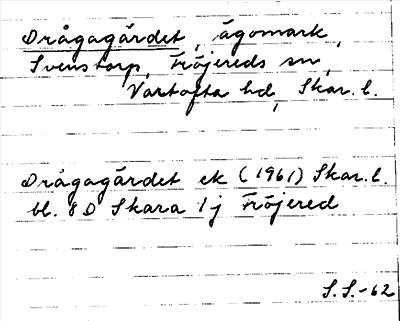 Drågagärdet, ägomark,
Svenstorp, Fröjereds sn,
Vartofta hd, Skar. l.
Drågagärdet ek (1961) Skar. l.
bl. 8 D Skara 1j Fröjered
S. S.-62